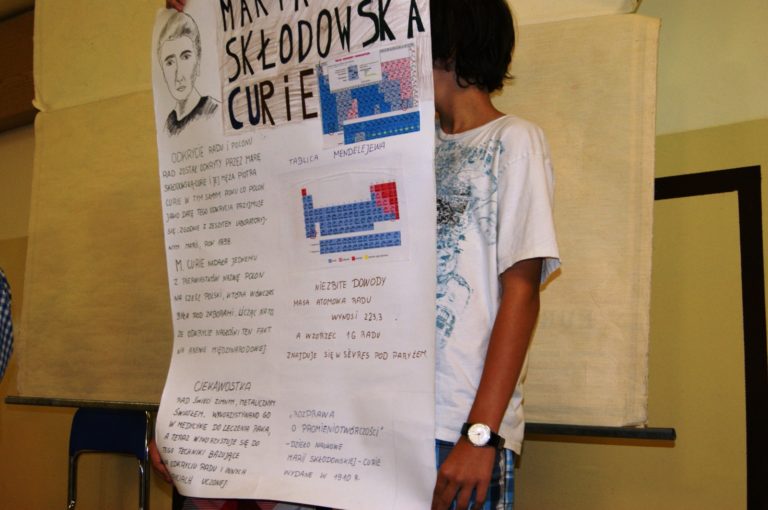 MARIA
SKŁODOWSKA
CURIE
ODKRYCIE RADU I POLONU
RAD ZOSTAŁ ODKRYTY PRZEZ MARIĘ
SKŁODOWSKĄ-CURIE I JEJ MĘŻA PIOTRA
CURIE W TYM SAMYM ROKU CO POLON
JAKO DATĘ TEGO ODKRYCIA PRZYJMUJE
SIĘ, ZGODNIE Z ZESZYTEM LABORATORYJ-
NYM MARII, ROK 1898.
M. CURIE NADAŁA JEDNEMU
Z PIERWIASTKÓW NAZWĘ POLON
NA CZEŚĆ POLSKI, KTÓRA WÓWCZAS
BYŁA POD ZABORAMI. LICZĄC NA TO
ŻE ODKRYCIE NAGŁOŚNI TEN FAKT
NA ARENIE MIĘDZYNARODOWEJ.
CIEKAWOSTKA
RAD ŚWIECI ZIMNYM, METALICZNYM
ŚWIATŁEM, WYKORZYSTYWANO GO
W MEDYCYNIE DO LECZENIA RAKA,
A TERAZ WYKORZYSTUJE SIĘ DO
TEGO TECHNIKI BAZUJĄCE
ODKRYCIU RADU I INNYCH
UCZONEJ.
TABLICA MENDELEJEWA
NIEZBITE DOWODY
MASA ATOMOWA RADU
WYNOSI 223,3
A WZORZEC 1G RADU
ZNAJDUJE SIĘ W SÈVRES POD PARYŻEM.
„ROZPRAWA
O PROMIENIOTWÓRCZOŚCI"
- DZIEŁO NAUKOWE
MARII SKŁODOWSKIEJ-CURIE
WYDANE W 1910 R.